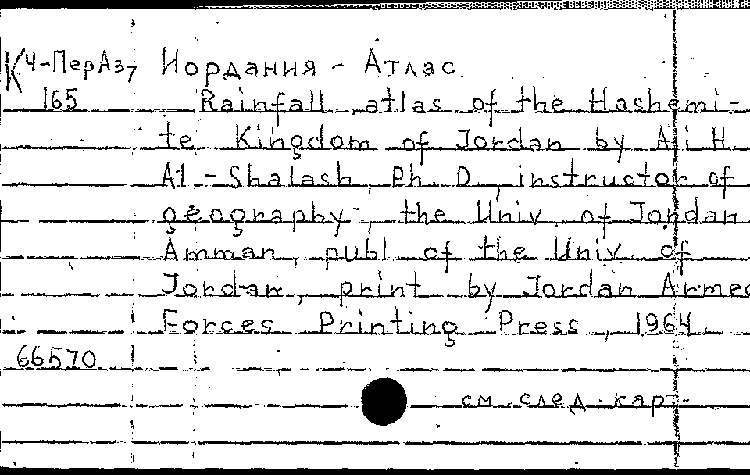 К Ч-ПерАз7 Иордания - Атлас.
165 Rainfall atlas of the Hashemi-
te Kingdom of Jordan by Ali H.
Al-Shalash, Ph. D., instructor of
geography, the Univ. of Jordan
Amman, publ. of the Univ. of
Jordan, print. by Jordan Armed
Forces Printing Press, 1964.
66570
см. след. карт.